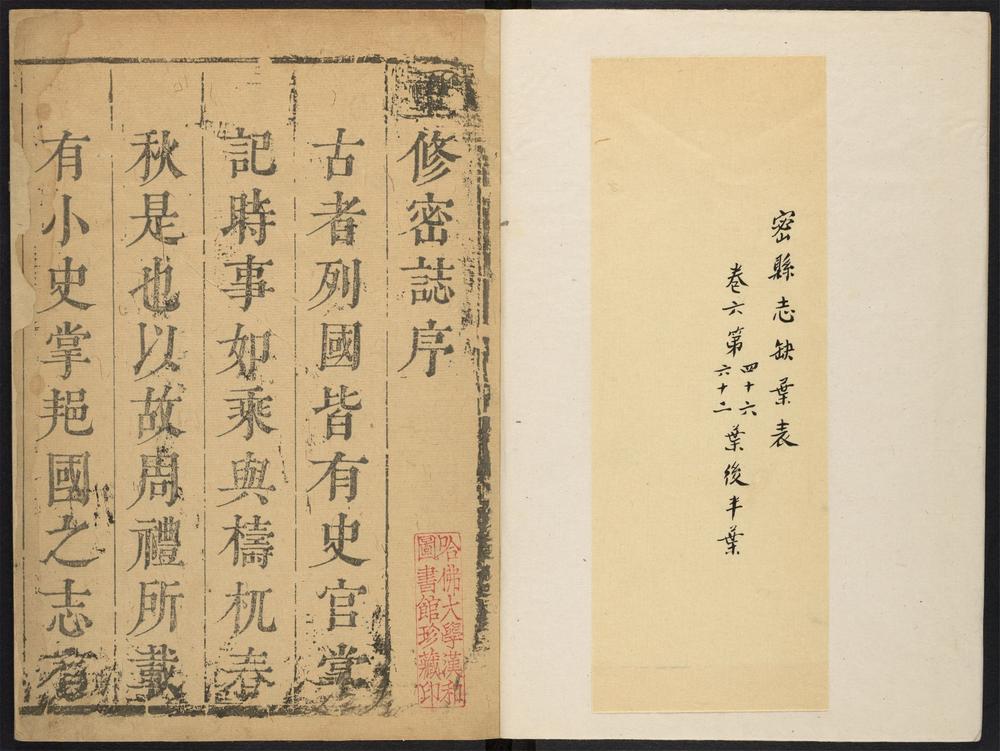 密縣志缺葉表
卷六第四十六六十二葉後半葉
修密誌序
古者列國皆有史官掌
記時事如乘與檮杌春
秋是也以故周禮所載
有小史掌邦國之志者
哈佛大學漢和
圖書館珍藏印